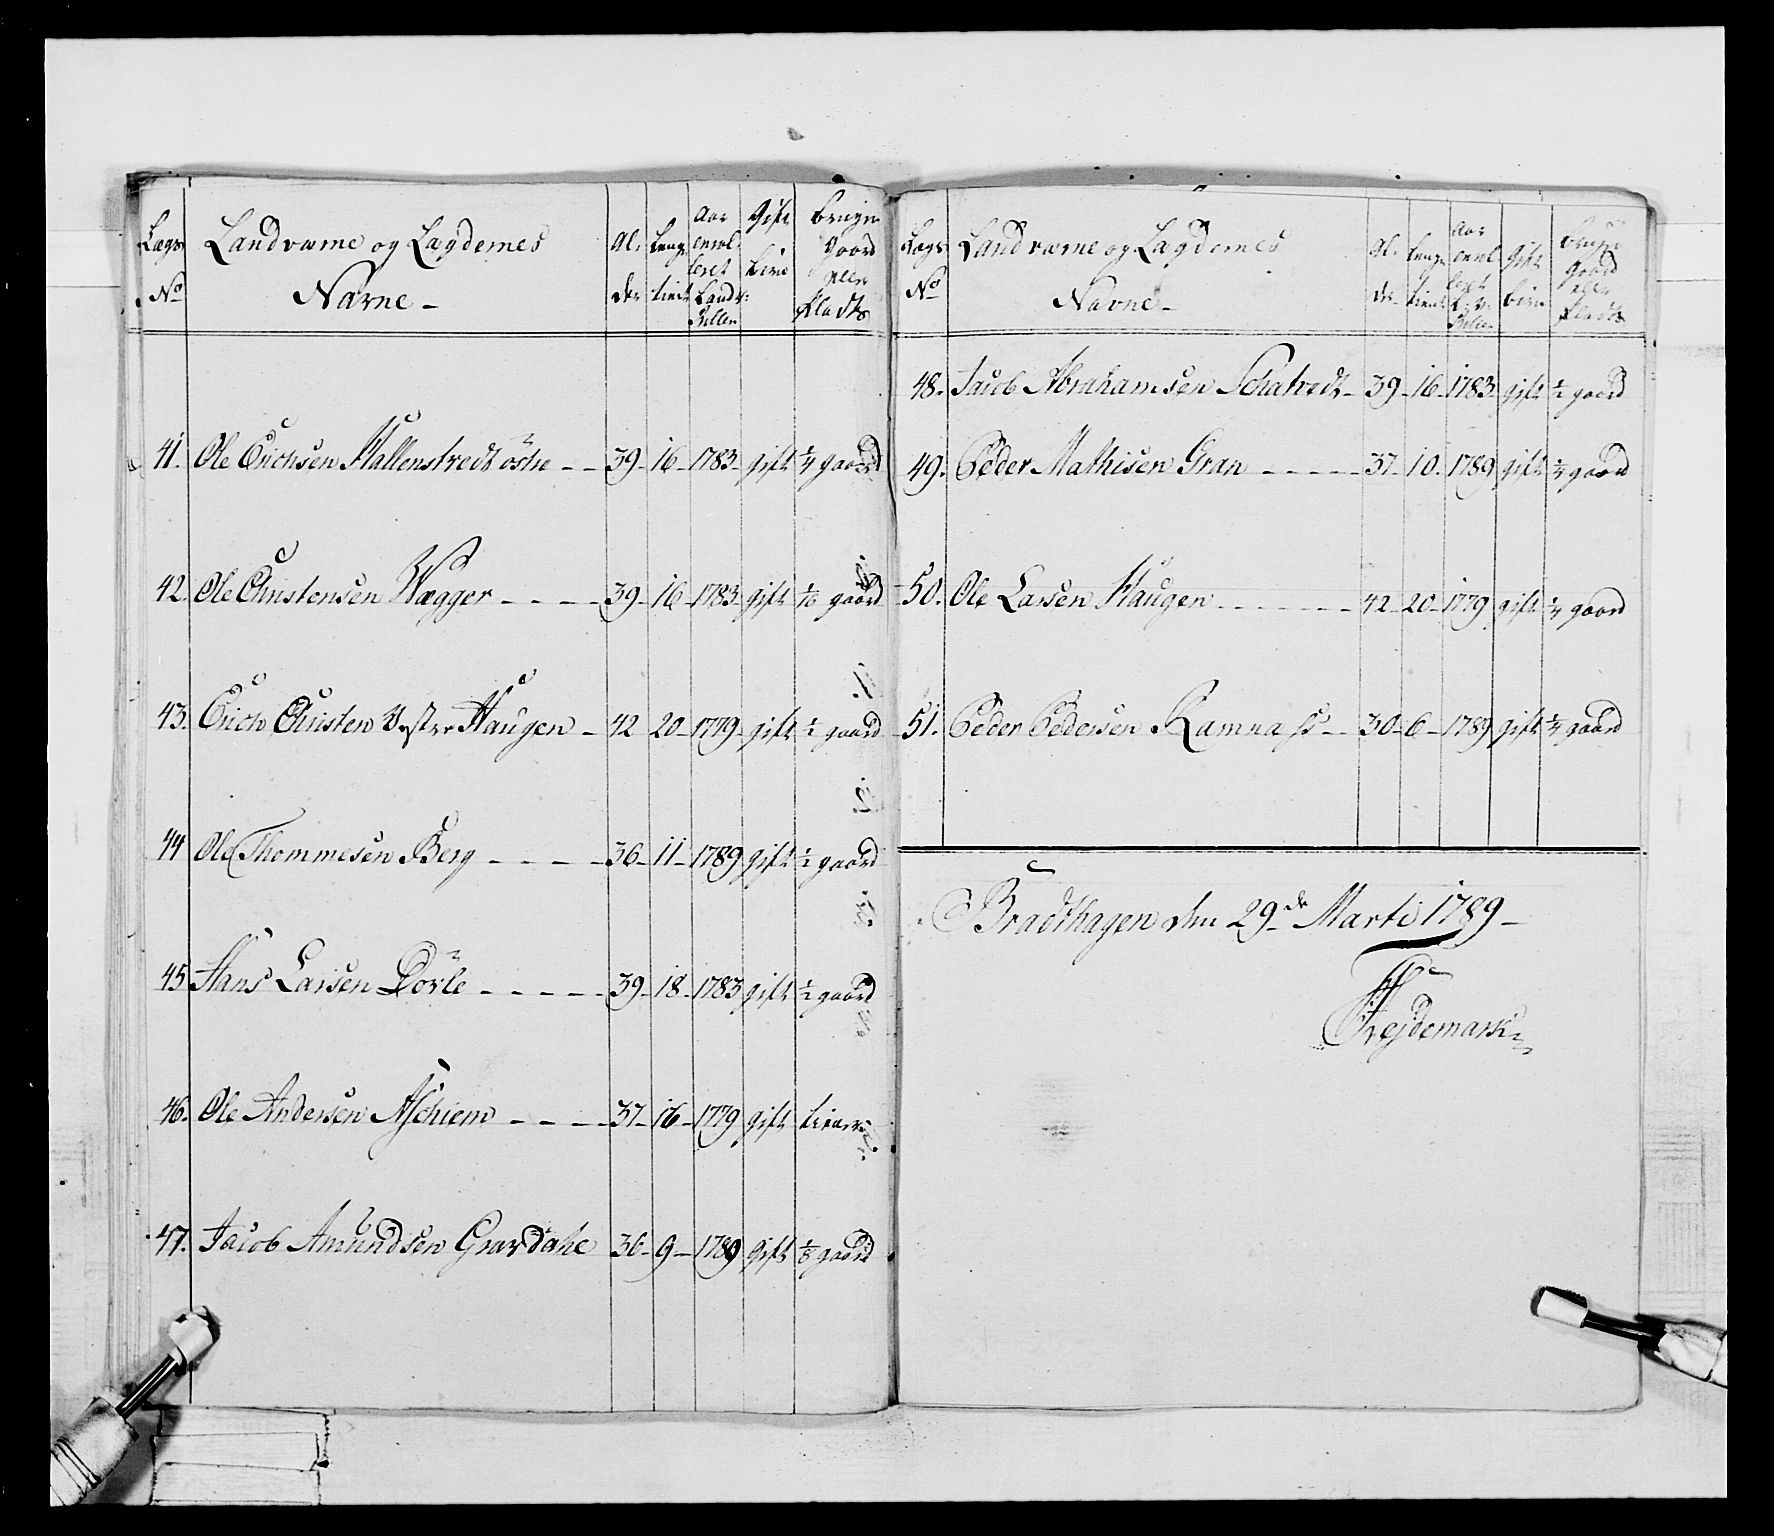 Lægs No | Landværne og Lægdernes Navne - | Al- der | længe tient | Aar enrol- leret Landv: | Gift | bruger Gaard eller Pladts
41. Ole Erichsen Hallenstvedt östre - - 39 - 16 - 1783 - gift 1/4 gaard
42. Ole Christensen Wægger - - - - 39 - 16 - 1783 - gift 1/16 gaard
43. Erich Christen Vester Haugen - 42 - 20 - 1779 - gift 1/2 gaard
44 Ole Thommesen Berg - - - - 36 - 11 - 1789 gift 1/2 gaard
45 Hans Larsen Dövle - - - - - 39 - 18 - 1783 gift 1/2 gaard
46. Ole Andersen Aschiem - - - - 37 - 16 - 1779 gift
47. Jacob Amundsen Gravdahl 36 - 9 - 1789 Gift 1/8 gaard
Lægs No | Landværne og Lægdernes Navne - | Al- der | længe tient | Aar enrol leret | gift | bruger gaard eller Pladts
48. Jacob Abrahamsen Schatvedt - 39 - 16 - 1783 - gift 1/2 gaard
49. Peder Mathisen Gran - - - - - 37 - 10 - 1789 gift 1/4 gaard
50. Ole Larsen Haugen - - - - - - - 42 - 20 - 1779 gift 1/4 gaard
51. Peder Pedersen Ramnass - - 30 - 6 - 1789 gift 1/4 gaard
Bradthagen den 29de Marti 1789 -